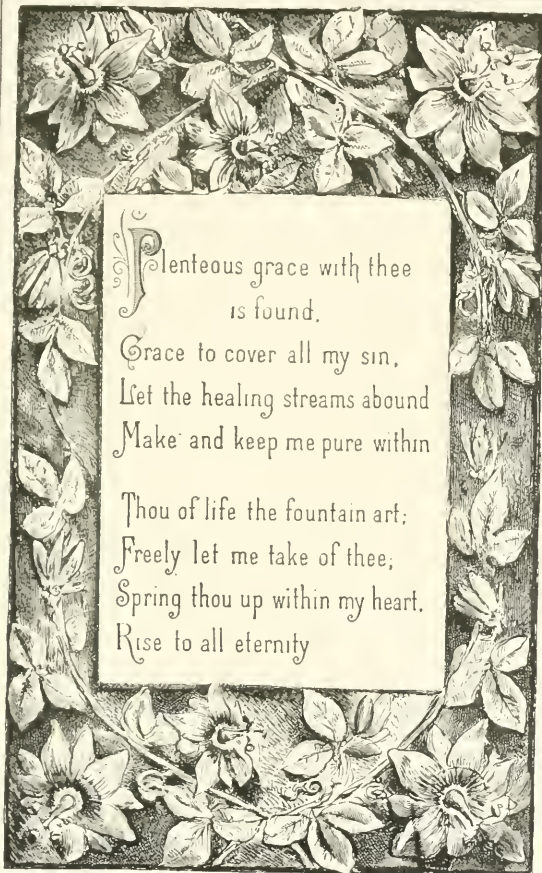 Plenteous grace with thee
is found,
Grace to cover all my sin,
Let the healing streams abound
Make and keep me pure within

Thou of life the fountain art;
Freely let me take of thee;
Spring thou up within my heart,
Rise to all eternity